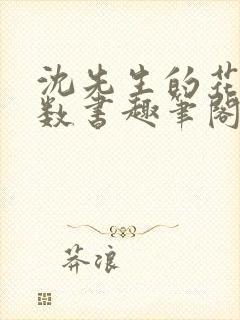 沈先生的花
数书趣笔阁
莽浪